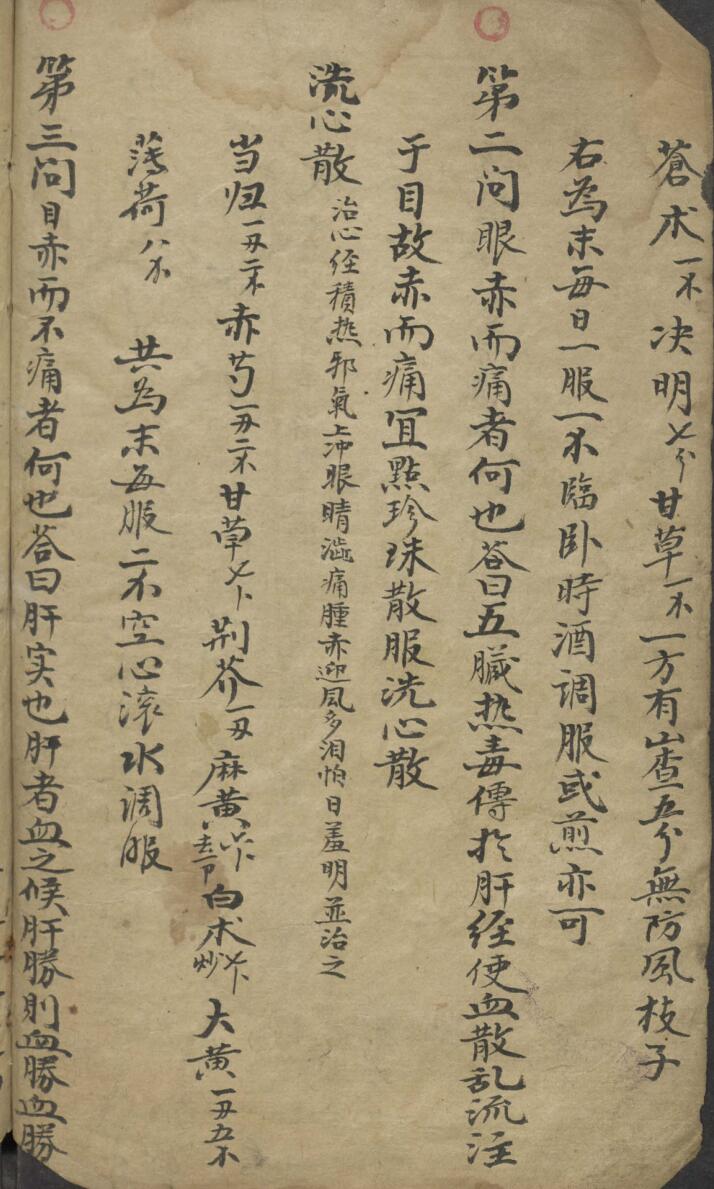 蒼术一不决明七分甘草一不一方有山查五分無防風枝子
右為末每日一服一不臨卧時酒調服或煎亦可
第二问眼赤而痛者何也荅曰五臟热毒傳於肝経使血散乱流注
于目故赤而痛宜點珍珠散服洗心散
洗心散治心経積热邪氣上沖眼睛澁痛腫赤迎風多泪怕日羞明並治之
当归一刄二不赤芍一刄二不甘草荆芥一刄麻黄去节白术炒大黄一刄五不
薄荷八不 共為末每服二不空心滚水调服
第三问目赤而不痛者何也荅曰肝实也肝者血之候肝勝則血勝血勝